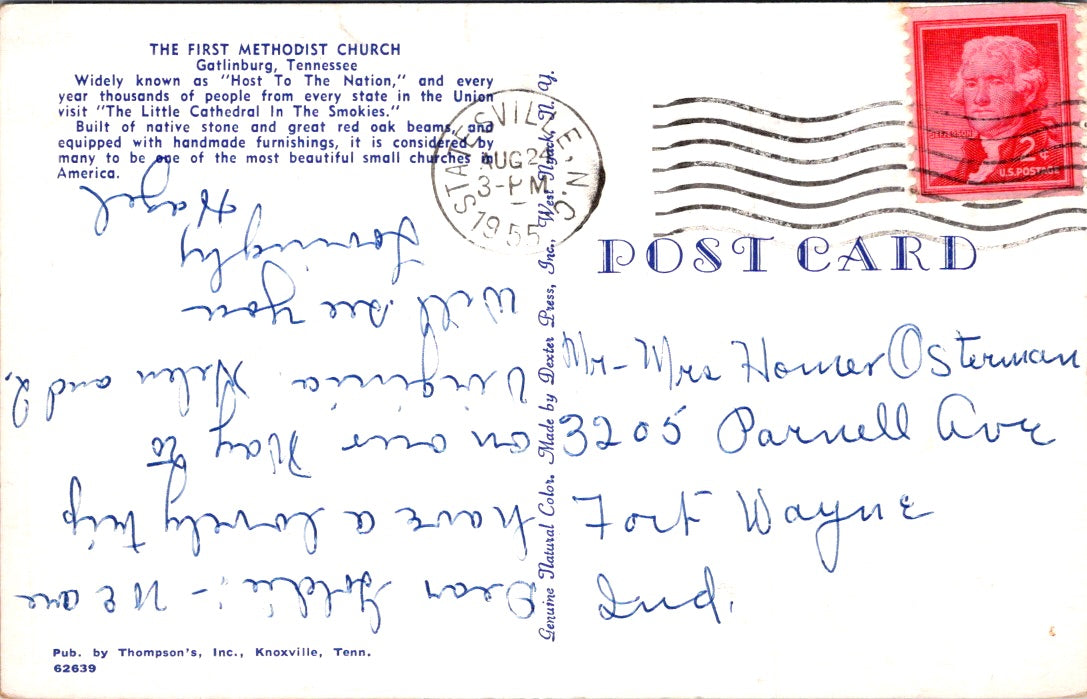 THE FIRST METHODIST CHURCH
Gatlinburg, Tennessee
Widely known as "Host To The Nation," and every
year thousands of people from every state in the Union
visit "The Little Cathedral In The Smokies."
Built of native stone and great red oak beams, and
equipped with handmade furnishings, it is considered by
many to be one of the most beautiful small churches in
America.
STATESVILLE, N.C.
AUG 24
3-PM
1955
JEFFERSON
2¢
U.S. POSTAGE
POST CARD
Mr-Mrs Homer Osterman
3205 Parnell Ave
Fort Wayne
Ind.
Dear Goldie:- We are
have a lovely trip
on our way to
Virginia. Helen and I,
Will see you
Lovingly
Hazel
Genuine Natural Color. Made by Dexter Press, Inc., West Nyack, N. Y.
Pub. by Thompson's, Inc., Knoxville, Tenn.
62639